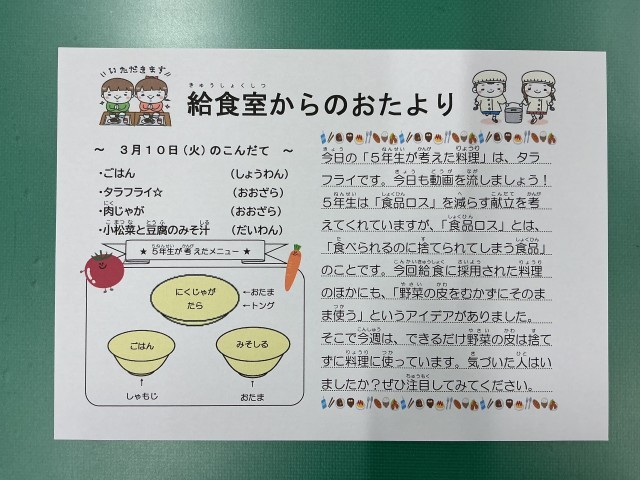 いただきます
給食室からのおたより
～ 3月10日（火）のこんだて ～
・ごはん （しょうわん）
・タラフライ☆ （おおざら）
・肉じゃが （おおざら）
・小松菜と豆腐のみそ汁 （だいわん）
★ 5年生が考えたメニュー ★
にくじゃが
たら
←おたま
←トング
ごはん
みそしる
↑
しゃもじ
↑
おたま
今日の「5年生が考えた料理」は、タラ
フライです。今日も動画を流しましょう！
5年生は「食品ロス」を減らす献立を考
えてくれていますが、「食品ロス」とは、
「食べられるのに捨てられてしまう食品」
のことです。今回給食に採用された料理
のほかにも、「野菜の皮をむかずにそのま
ま使う」というアイデアがありました。
そこで今週は、できるだけ野菜の皮は捨て
ずに料理に使っています。気づいた人はい
ましたか？ぜひ注目してみてください。